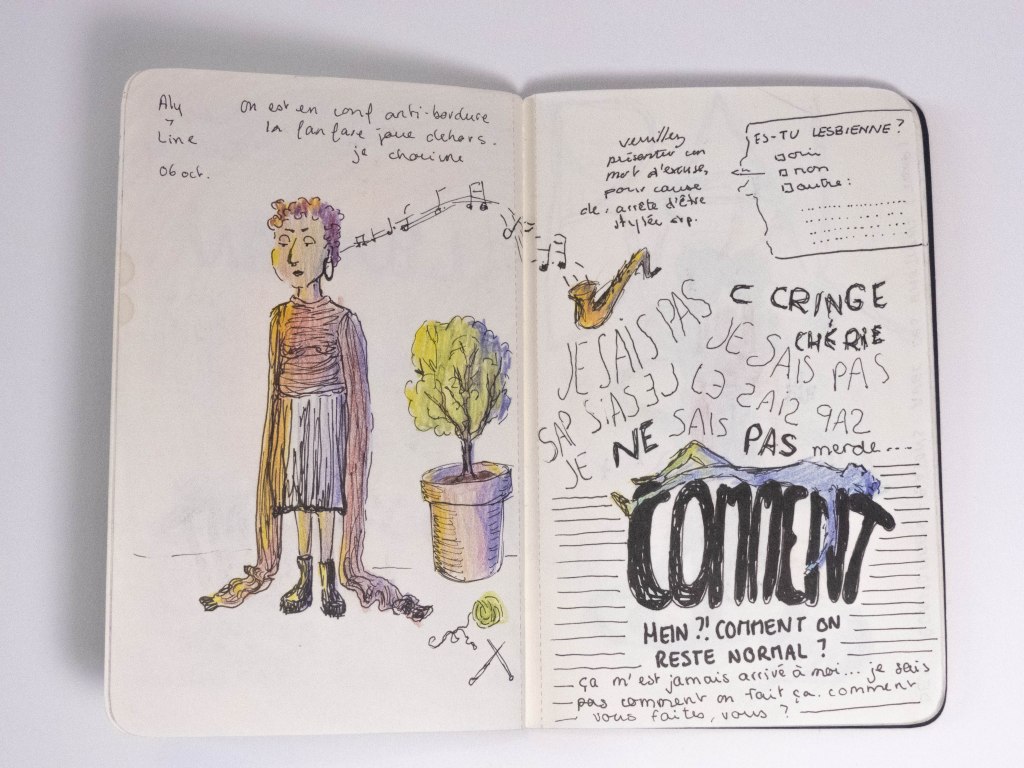 Aly
Line
06 oct.
on est en conf anti-bordure
la fanfare joue dehors.
je chouine
veuillez
présenter un
mot d'excuse,
pour cause
de: arrête d'être
stylée svp.
ES-TU LESBIENNE ?
oui
non
autre:
C CRINGE
CHÉRIE
JE SAIS PAS
JE SAIS PAS
SAP SIAS EJ JE SAIS PAS
JE NE SAIS PAS merde....
COMMENT
HEIN ?! COMMENT ON
RESTE NORMAL ?
ça m'est jamais arrivé à moi... je sais
pas comment on fait ça. comment
vous faites, vous ?